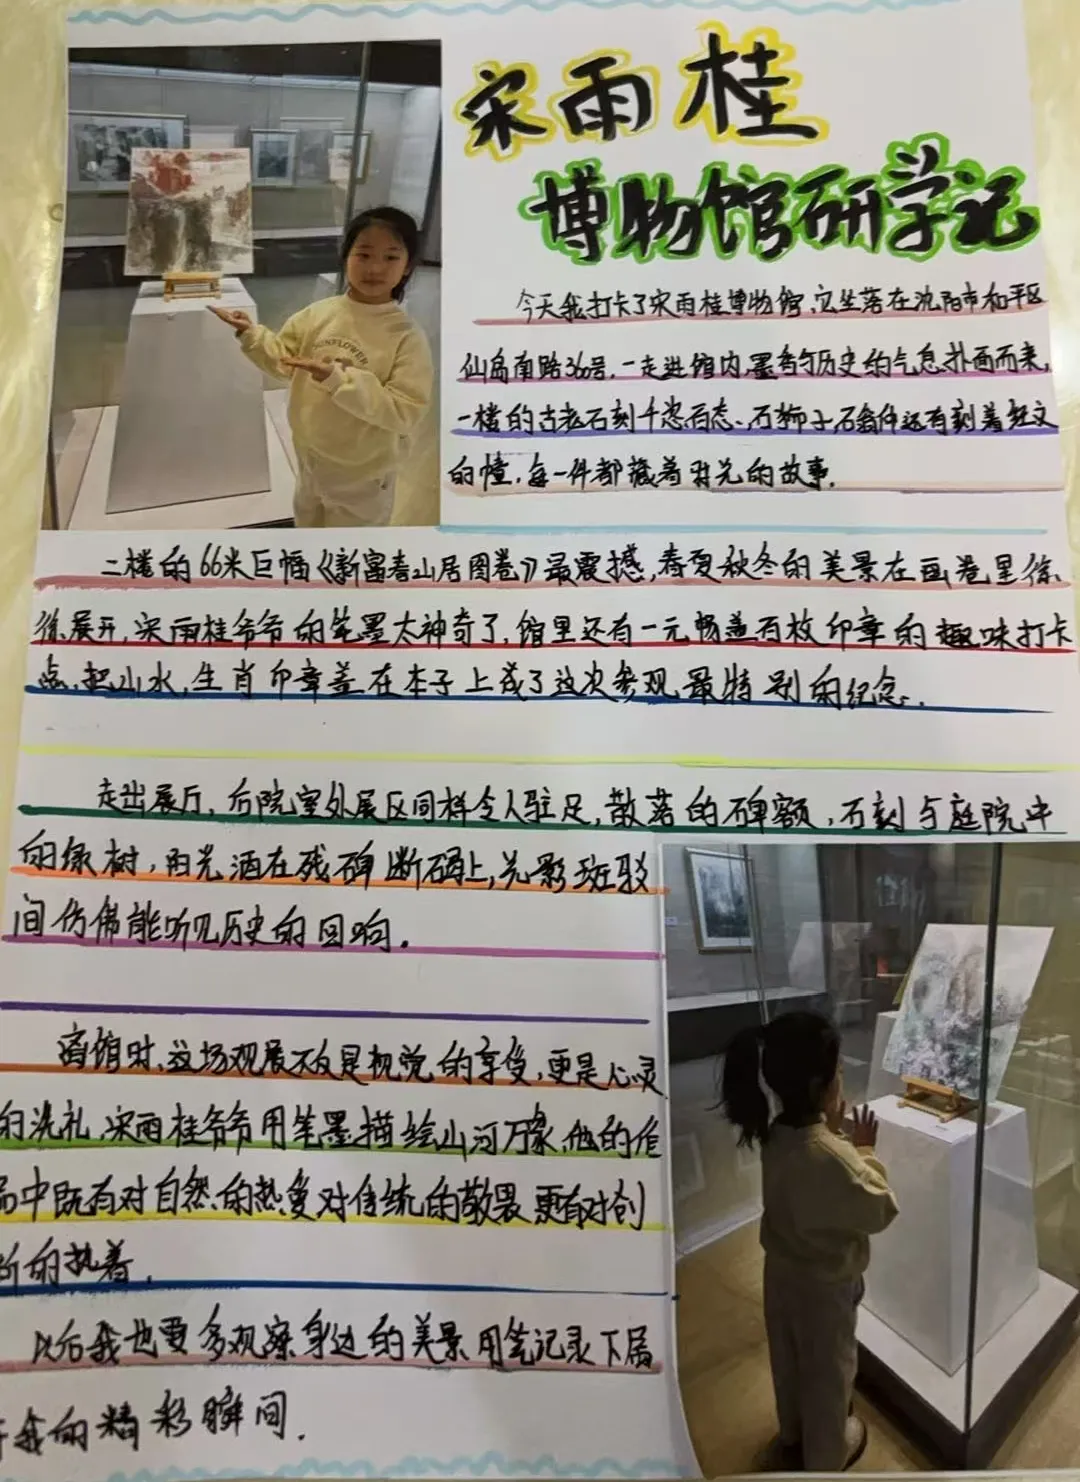 宋雨桂
博物馆研学记
今天我打卡了宋雨桂博物馆,它坐落在沈阳市和平区
仙岛南路36号.一走进馆内,墨香与历史的气息扑面而来,
一楼的古老石刻千姿百态、石狮子,石翁仲还有刻着经文
的幢,每一件都藏着时光的故事.
二楼的66米巨幅《新富春山居图卷》最震撼,春夏秋冬的美景在画卷里徐
徐展开,宋雨桂爷爷的笔墨太神奇了,馆里还有一元畅盖百枚印章的趣味打卡
点,把山水,生肖印章盖在本子上成了这次参观最特别的纪念.
走出展厅,后院室外展区同样令人驻足,散落的碑额,石刻与庭院中
的绿树,阳光洒在残碑断碣上,光影斑驳
间仿佛能听见历史的回响.
离馆时,这场观展不仅是视觉的享受,更是心灵
的洗礼,宋雨桂爷爷用笔墨描绘山河万象,他的作
品中既有对自然的热爱对传统的敬畏更有对创
新的执着.
以后我也要多观察身边的美景用笔记录下属
于我的精彩瞬间.
SUNFLOWER